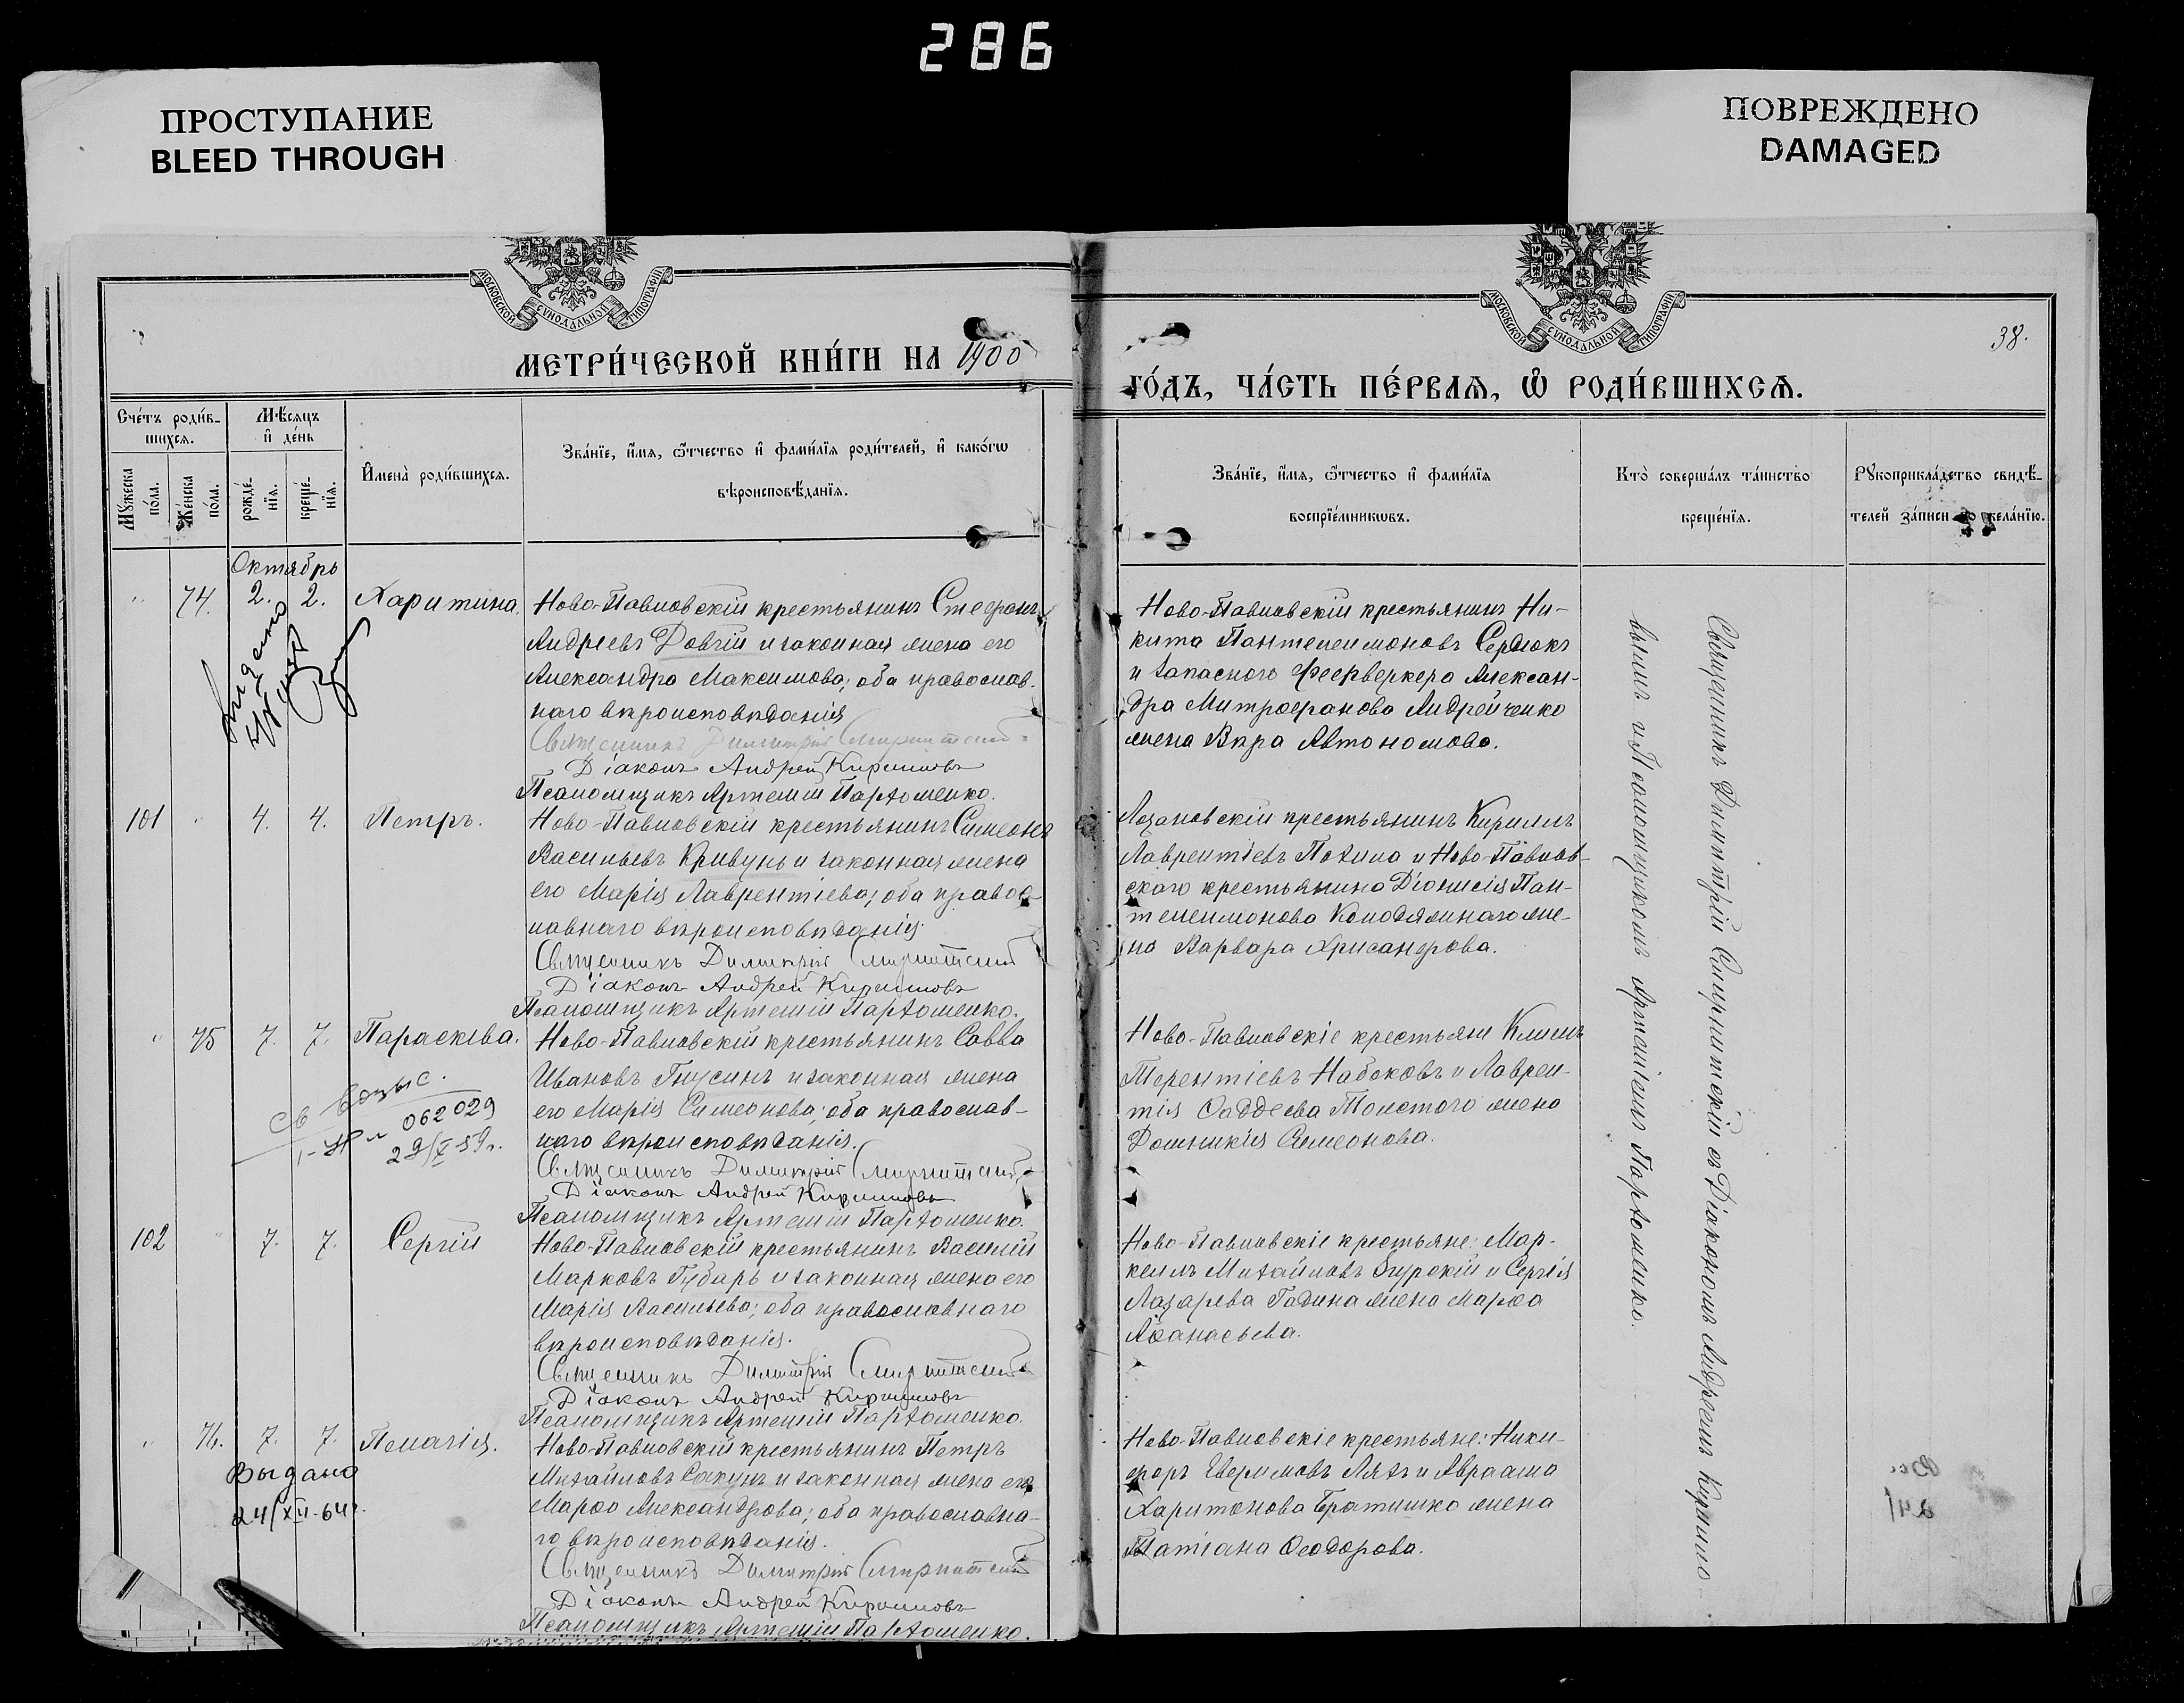 286
ПРОСТУПАНИЕ
BLEED THROUGH
ПОВРЕЖДЕНО
DAMAGED
МОСКОВСКОЙ СУНОДАЛЬНОЙ ТИПОГРАФІИ
МОСКОВСКОЙ СУНОДАЛЬНОЙ ТИПОГРАФІИ
38.
МЕТРИ́ЧЕСКОЙ КНИ́ГИ НА 1900
ГО́ДЪ, ЧА́СТЬ ПЕ́РВАѦ, Ѽ РОДИ́ВШИХСѦ.
Сче́тъ роди́в-
шихсѧ.
Мѣ́сѧцъ
и҆ де́нь
Мꙋ́жеска
по́ла.
Же́нска
по́ла.
рожде́-
нїѧ.
креще́-
нїѧ.
И҆мена̀ роди́вшихсѧ.
Зва́нїе, и҆́мѧ, ѻ҆́тчество и҆ фами́лїѧ роди́телей, и҆ како́гѡ
вѣроисповѣ́данїѧ.
Зва́нїе, и҆́мѧ, ѻ҆́тчество и҆ фами́лїѧ
воспрїе́мникѡвъ.
Кто̀ соверша́лъ та́инство
креще́нїѧ.
Рꙋкоприкла́дство свидѣ́-
телей за́писи по жела́нїю.
Октябрь
" 74. 2. 2. Харитина.
Ново-Павловскій крестьянинъ Стефанъ
Андреевъ Довгій и законная жена его
Александра Максимова; оба православ-
наго вѣроисповѣданія
Священникъ Димитрій Смирнитскій
Діаконъ Андрей Кириловъ
Псаломщикъ Артемій Пархоменко.
Ново-Павловскій крестьянинъ Ни-
кита Пантелеимоновъ Сердюкъ
и запасного Феерверкера Алексан-
дра Митрофанова Андрейченко
жена Вѣра Автономова.
101 " 4. 4. Петръ.
Ново-Павловскій крестьянинъ Симеонъ
Васильевъ Кривунъ и законная жена
его Марія Лаврентіева; оба правос-
лавнаго вѣроисповѣданія.
Священникъ Димитрій Смирнитскій
Діаконъ Андрей Кириловъ
Псаломщикъ Артемій Пархоменко.
Лозановскій крестьянинъ Кириллъ
Лаврентіевъ Похила и Ново-Павлов-
скаго крестьянина Діонисія Пан-
телеимонова Колодяжнаго же-
на Варвара Хрисанфова.
" 75 7. 7. Параскева.
Ново-Павловскій крестьянинъ Савва
Ивановъ Гнусинъ и законная жена
его Марія Симеонова; оба православ-
наго вѣроисповѣданія.
Священникъ Димитрій Смирнитскій
Діаконъ Андрей Кириловъ
Псаломщикъ Артемій Пархоменко.
062029
29/X 59г.
Ново-Павловскіе крестьяне Климъ
Терентіевъ Набоковъ и Лаврен-
тія Фаддеева Толстого жена
Домникія Симеонова.
102 " 7. 7. Сергій
Ново-Павловскій крестьянинъ Василій
Марковъ Губарь и законная жена его
Марія Васильева; оба православнаго
вѣроисповѣданія.
Священникъ Димитрій Смирнитскій
Діаконъ Андрей Кириловъ
Псаломщикъ Артемій Пархоменко.
Ново-Павловскіе крестьяне: Мар-
келлъ Михайловъ и Сергія
Лазарева Гадина жена Марѳа
Аѳанасьева.
" 76. 7. 7. Пелагія.
Выдано
24/XII-64г.
Ново-Павловскій крестьянинъ Петръ
Михайловъ Сакунъ и законная жена его
Марѳа Александрова; оба православна-
го вѣроисповѣданія.
Священникъ Димитрій Смирнитскій
Діаконъ Андрей Кириловъ
Псаломщикъ Артемій Пархоменко.
Ново-Павловскіе крестьяне: Ники-
форъ Евфимовъ Ляхъ и Авраама
Харитонова Братишко жена
Татіана Ѳеодорова.
Священникъ Димитрій Смирнитскій съ Діакономъ Андреемъ Кирило-
вымъ и Псаломщикомъ Артеміемъ Пархоменко.